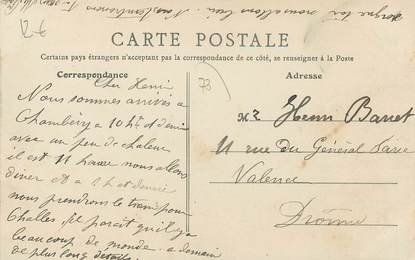 12€
soigne toi nous allons bien
CARTE POSTALE
Certains pays étrangers n'acceptent pas la correspondance de ce côté, se renseigner à la Poste
Correspondance
Adresse
73
Cher Henri
Nous sommes arrivés a
Chambéry a 10 h et demi
avec un peu de chaleur
il est 11 heures nous allons
diner et a 1 h et demie
nous prendrons le tram pour
Challes il parait qu'il y a
beaucoup de monde. a demain
de plus longs détails
Mr Henri Barret
11 rue du Général
Valence
Drôme